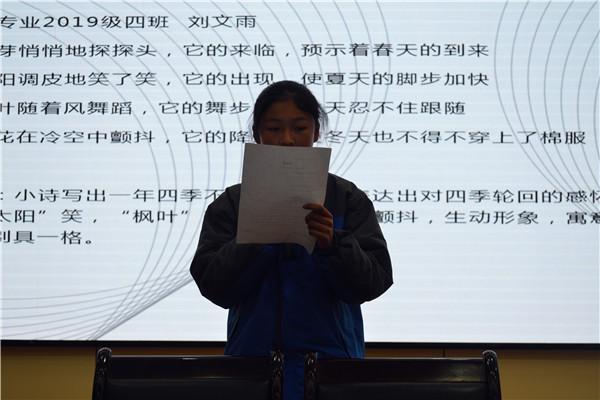 专业2019级四班 刘文雨
芽悄悄地探探头，它的来临，预示着春天的到来
阳调皮地笑了笑，它的出现 使夏天的脚步加快
叶随着风舞蹈，它的舞步 天忍不住跟随
花在冷空中颤抖，它的降 冬天也不得不穿上了棉服
：小诗写出一年四季不 达出对四季轮回的感怀
太阳”笑，“枫叶” 颤抖，生动形象，寓意
别具一格。